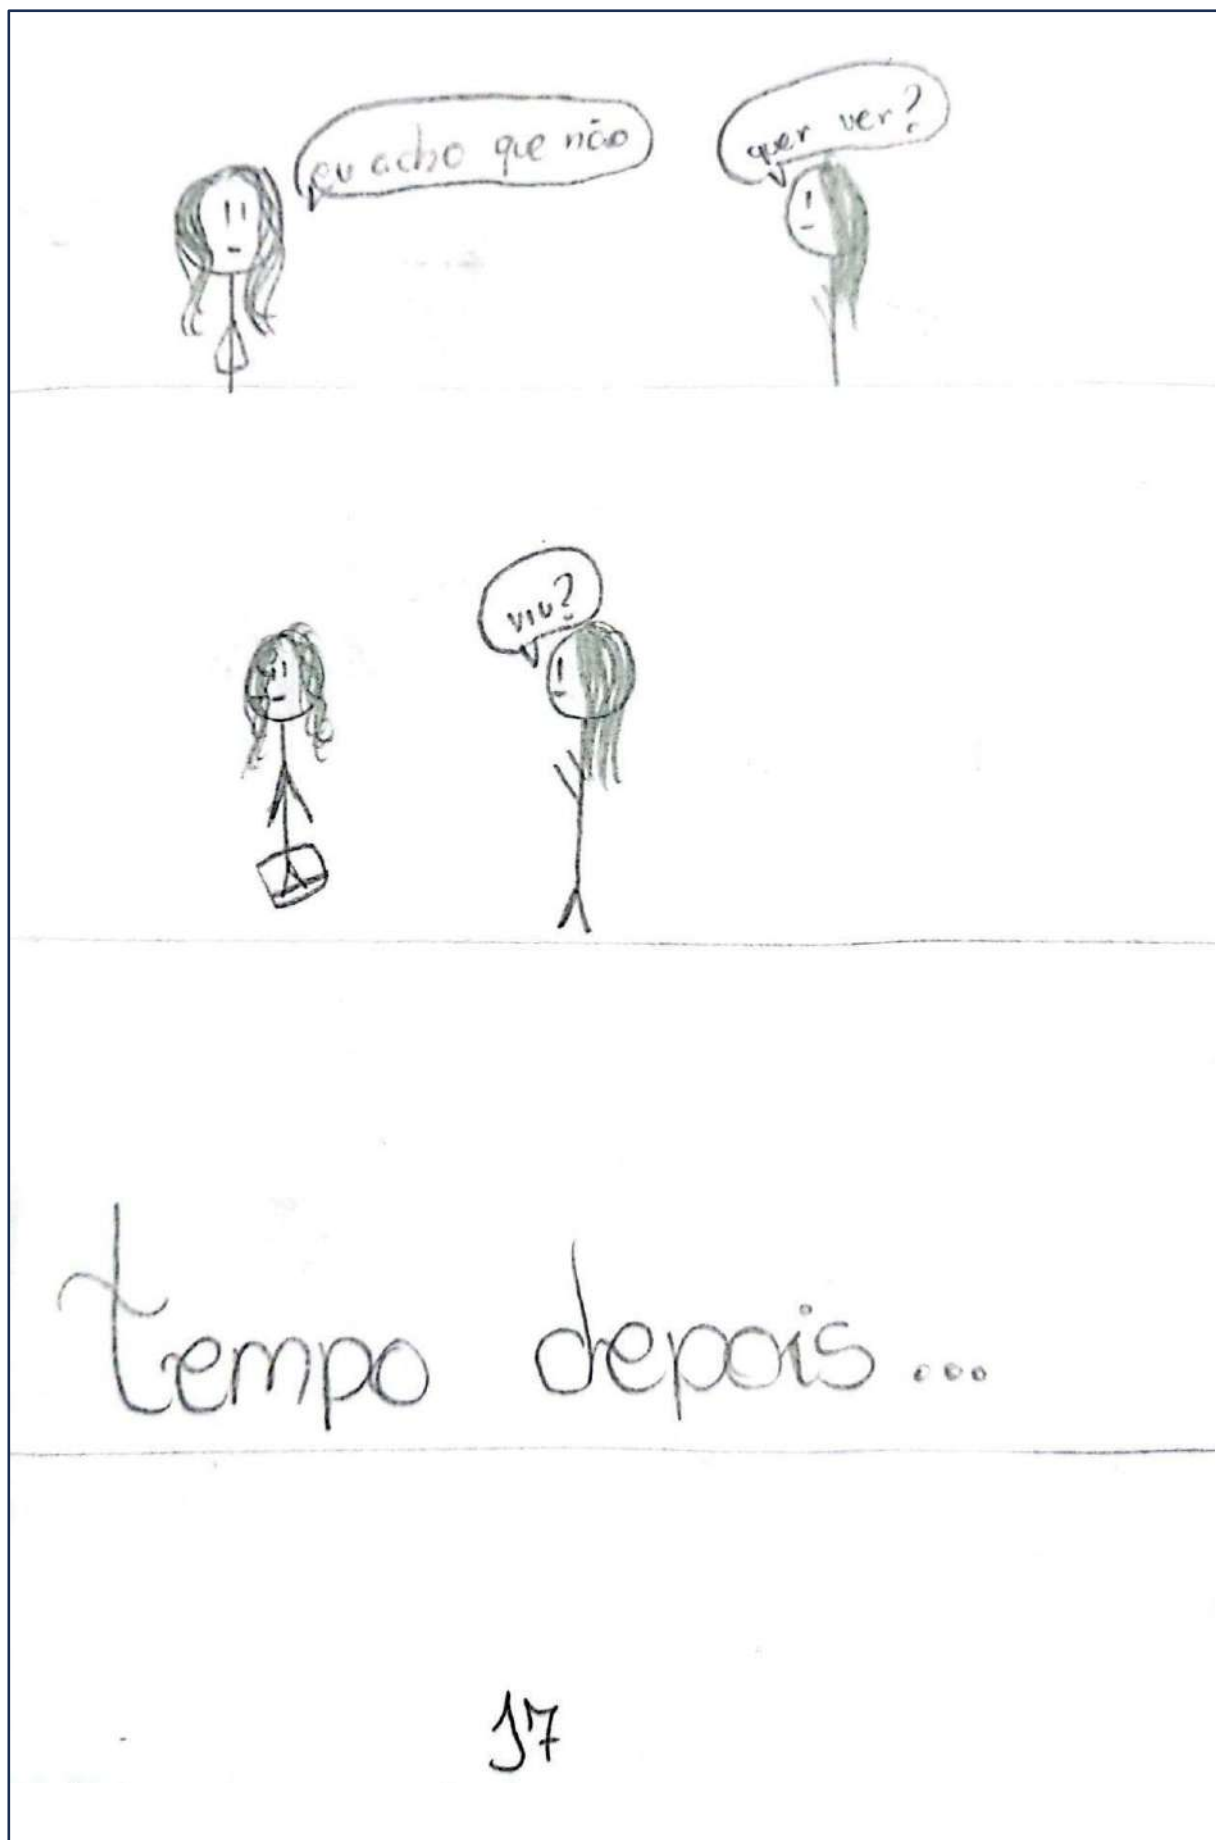 eu acho que não
quer ver?
viu?
tempo depois...
17